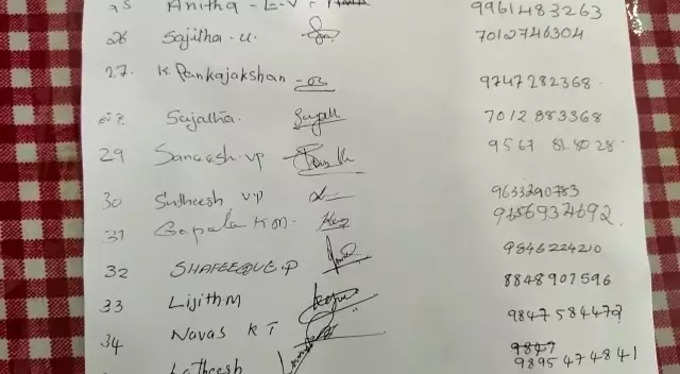 25 Anitha - E-V 9961483263
26 Sajitha - U. 7012746304
27. K. Pankajakshan 9747282368
Sajatha. 7012883368
29 Saneesh. vp 9567 818028
30 Sutheesh vp 9633290783
31 Gopala K M. 9656934692.
32 SHAFEEQUE.P 9846224210
33 Lijith M 8848907596
34 Navas K T 9847584479
Latheesh 9847
9895474841